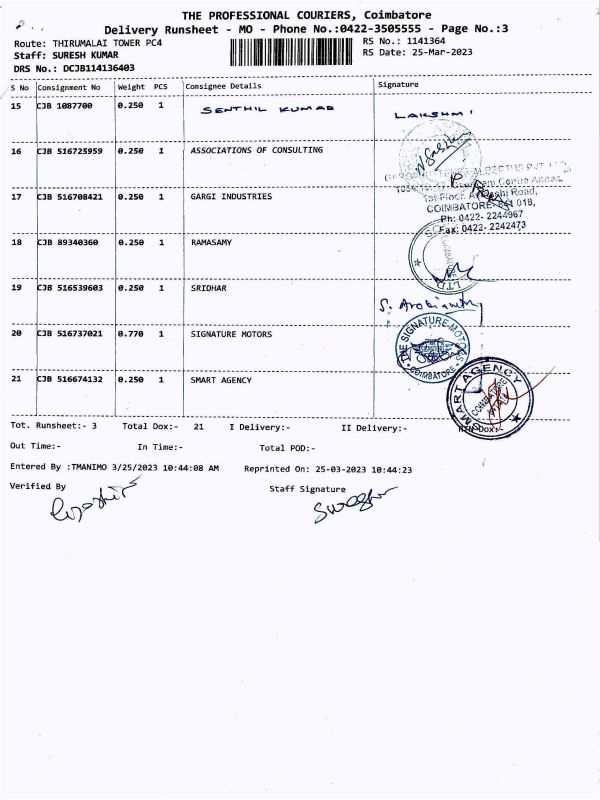 THE PROFESSIONAL COURIERS, Coimbatore
Delivery Runsheet - MO - Phone No.:0422-3505555 - Page No.:3
Route: THIRUMALAI TOWER PC4 RS No.: 1141364
Staff: SURESH KUMAR RS Date: 25-Mar-2023
DRS No.: DCJB114136403
S No Consignment No Weight PCS Consignee Details Signature
15 CJB 1087700 0.250 1 SENTHIL KUMAR LAKSHMI
16 CJB 516725959 0.250 1 ASSOCIATIONS OF CONSULTING
17 CJB 516708421 0.250 1 GARGI INDUSTRIES
1st Floor, Road,
COIMBATORE- 641 018,
Ph: 0422- 2244967
Fax: 0422- 2242473
18 CJB 89340360 0.250 1 RAMASAMY
LTD
19 CJB 516539603 0.250 1 SRIDHAR
20 CJB 516737021 0.770 1 SIGNATURE MOTORS
THE SIGNATURE MOTORS
COIMBATORE
21 CJB 516674132 0.250 1 SMART AGENCY
SMART AGENCY
COIMBATORE
Tot. Runsheet:- 3 Total Dox:- 21 I Delivery:- II Delivery:- RTN Dox:-
Out Time:- In Time:- Total POD:-
Entered By :TMANIMO 3/25/2023 10:44:08 AM Reprinted On: 25-03-2023 10:44:23
Verified By Staff Signature